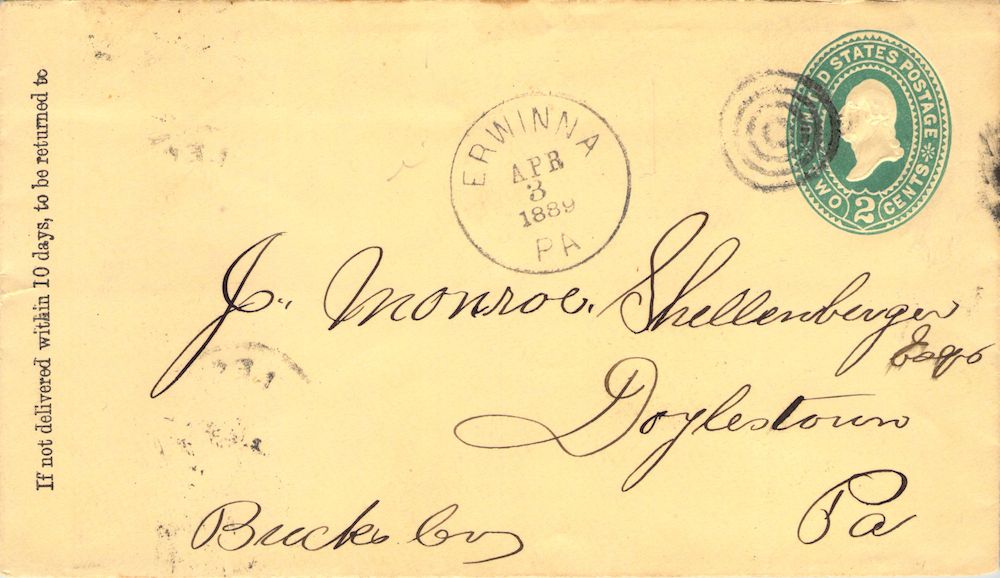 If not delivered within 10 days, to be returned to
ERWINNA
APR
3
1889
PA.
UNITED STATES POSTAGE
TWO 2 CENTS
J. Monroe Shellenberger
Esq
Doylestown
Bucks Co Pa